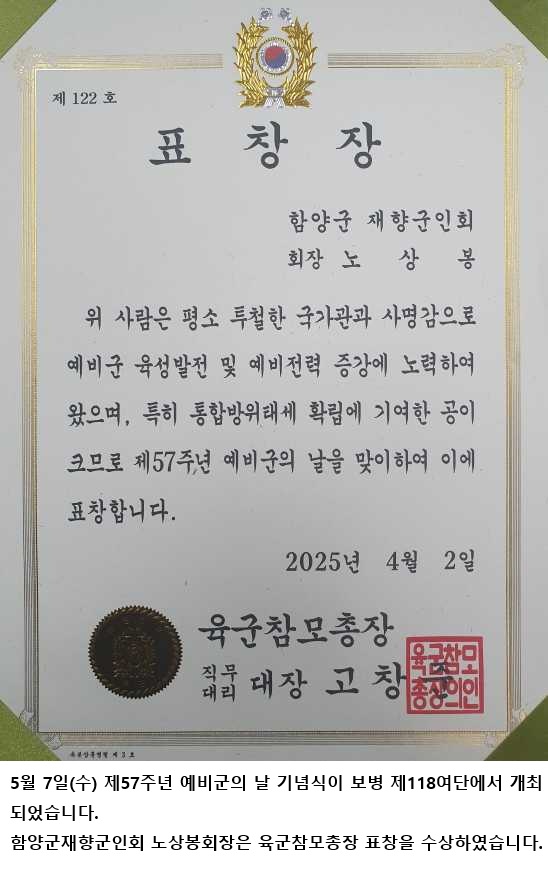 제 122 호
표 창 장
함양군 재향군인회
회장 노 상 봉
위 사람은 평소 투철한 국가관과 사명감으로
예비군 육성발전 및 예비전력 증강에 노력하여
왔으며, 특히 통합방위태세 확립에 기여한 공이
크므로 제57주년 예비군의 날을 맞이하여 이에
표창합니다.
2025년 4월 2일
육군참모총장
직무
대리 대장 고 창 준
육군참모
총장의인
5월 7일(수) 제57주년 예비군의 날 기념식이 보병 제118여단에서 개최
되었습니다.
함양군재향군인회 노상봉회장은 육군참모총장 표창을 수상하였습니다.